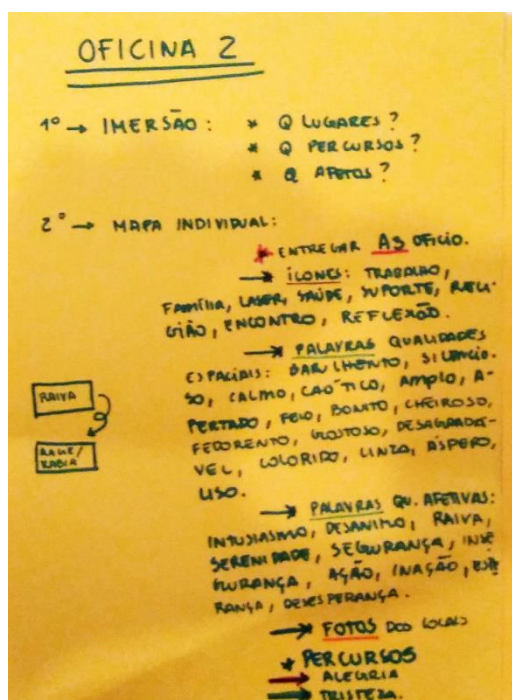 OFICINA 2
1º → IMERSÃO: * Q LUGARES?
* Q PERCURSOS?
* Q AFETOS?
2º → MAPA INDIVIDUAL:
* ENTREGAR A3 OFICIO.
→ ÍCONES: TRABALHO,
FAMÍLIA, LASER, SAÚDE, SUPORTE, RELI-
GIÃO, ENCONTRO, REFLEXÃO.
→ PALAVRAS QUALIDADES
ESPACIAIS: BARULHENTO, SILENCIO-
SO, CALMO, CAÓTICO, AMPLO, A-
PERTADO, FEIO, BONITO, CHEIROSO,
FEDORENTO, GOSTOSO, DESAGRADÁ-
VEL, COLORIDO, CINZA, ÁSPERO,
LISO.
RAIVA
RAGE/
RABIA
→ PALAVRAS QU. AFETIVAS:
INTUSIASMO, DESANIMO, RAIVA,
SERENIDADE, SEGURANÇA, INSE
GURANÇA, AÇÃO, INAÇÃO, ESPE
RANÇA, DESESPERANÇA.
→ FOTOS DOS LOCAIS
* PERCURSOS
→ ALEGRIA
→ TRISTEZA.